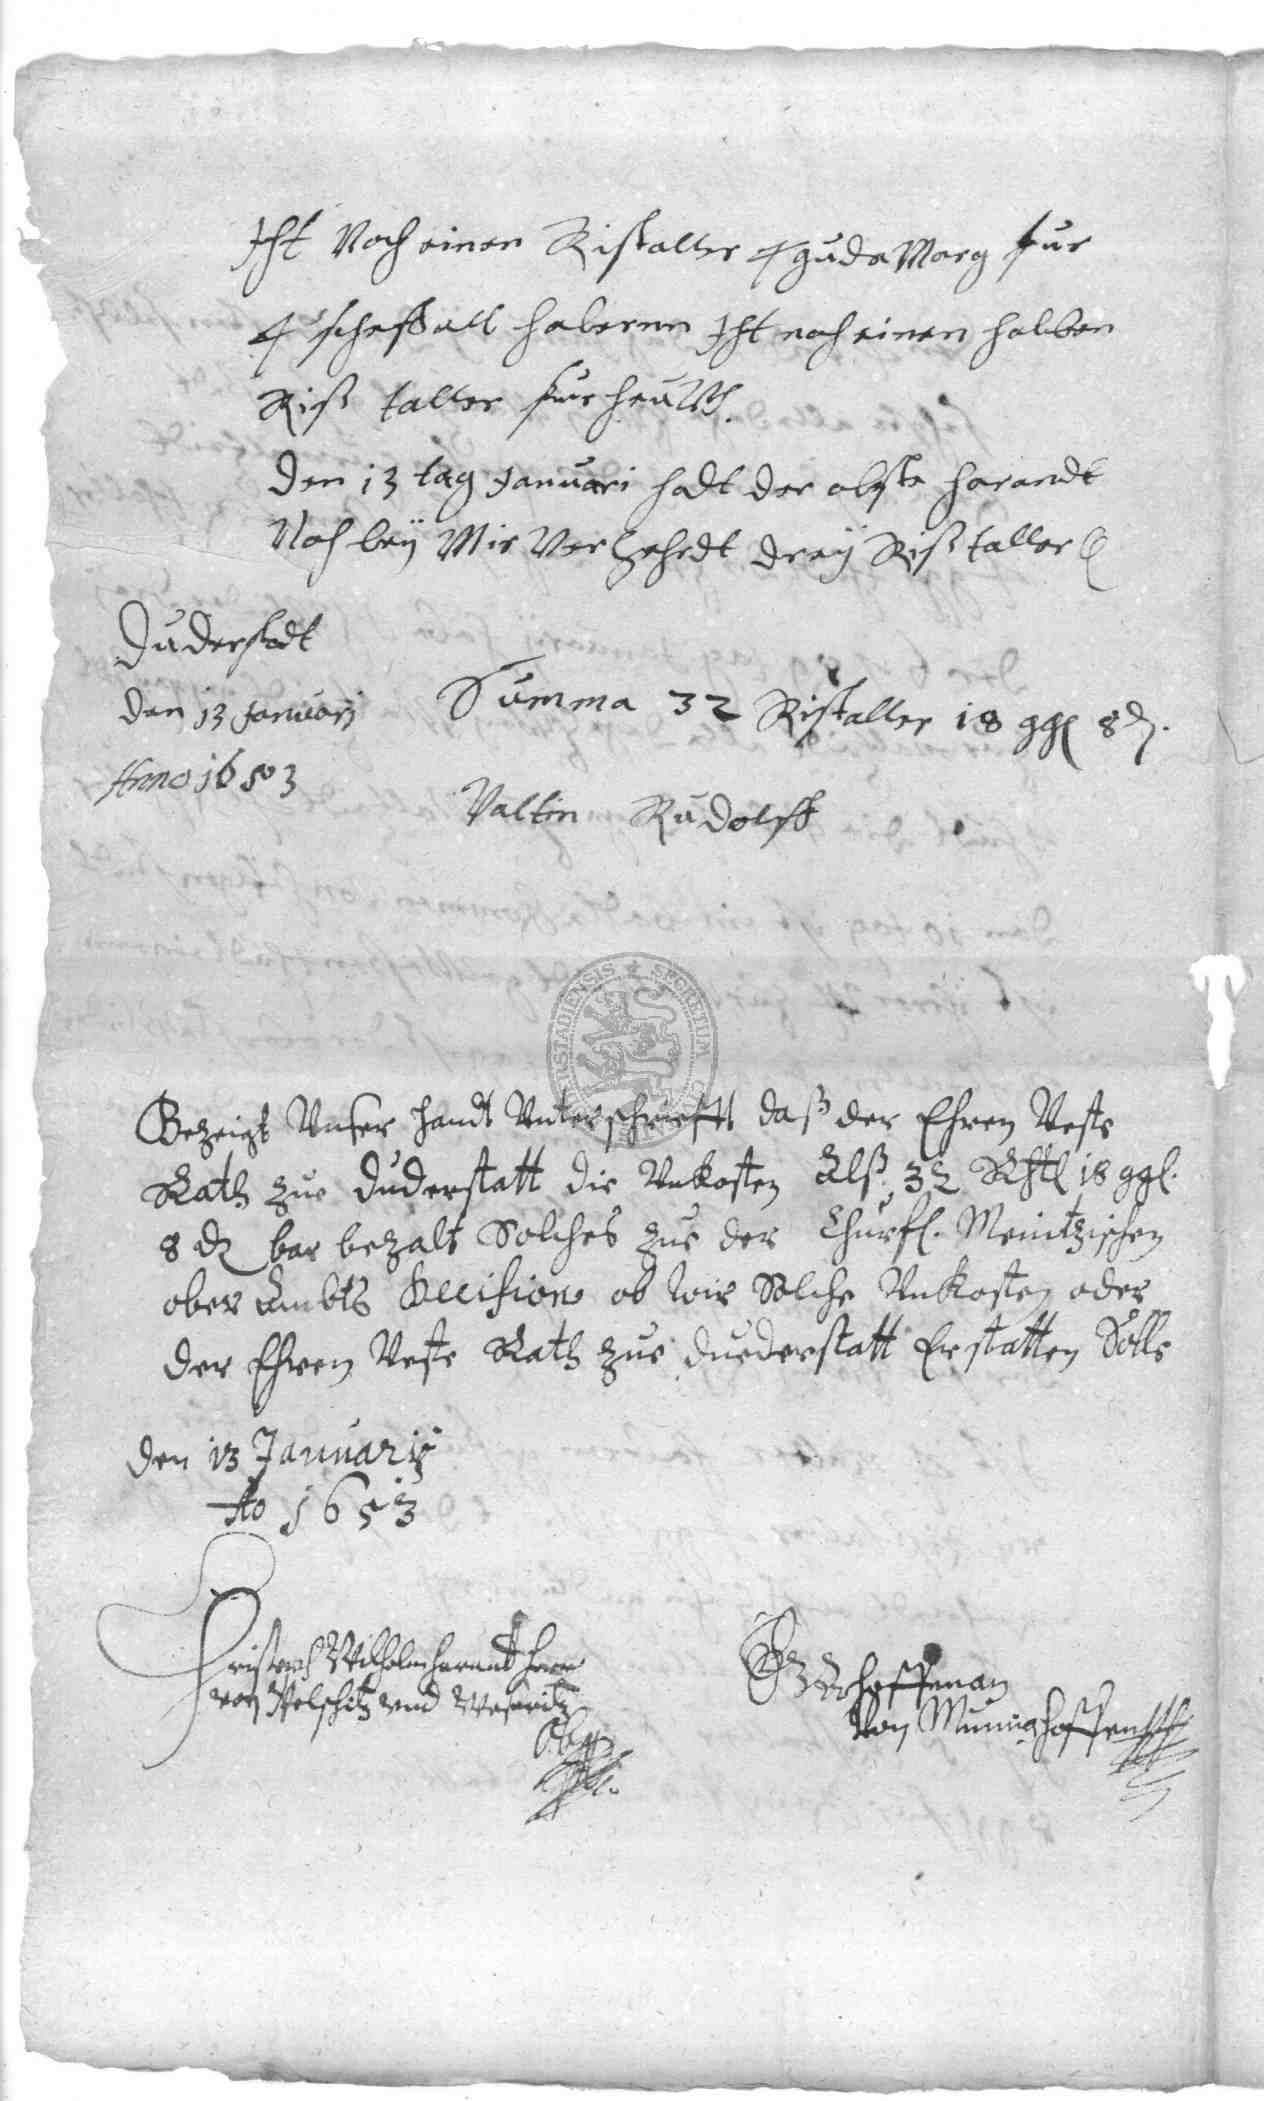 Ist Noch einen Ristaller 4 gude Marg fur
4 scheffall haberen Ist noch einen halben
Riß taller fur heuw
Den 13 tag Januari hadt der obste harandt
Noch beÿ Mir Verzehrdt dreÿ Riß taller
Duderstadt
den 13 Januarj
Anno 1653
Summa 32 Ristaller 18 ggl 8 ₰.
Valtin Rudolff
SECRETUM
Bezeigt Vnser handt Vnterschriefft daß der Ehren Veste
Rath zue Duderstatt die Vnkosten Alß 32 Rthl 18 ggl.
8 ₰ bar bezalt Solches zue der Churfl. Meintzischen
ober Ambts Decision ob wir Solche Vnkosten oder
der Ehren Veste Rath zue duederstatt Erstatten Solle
den 13 Januarij
Ao 1653
Wilhelm harant herr
von und
von